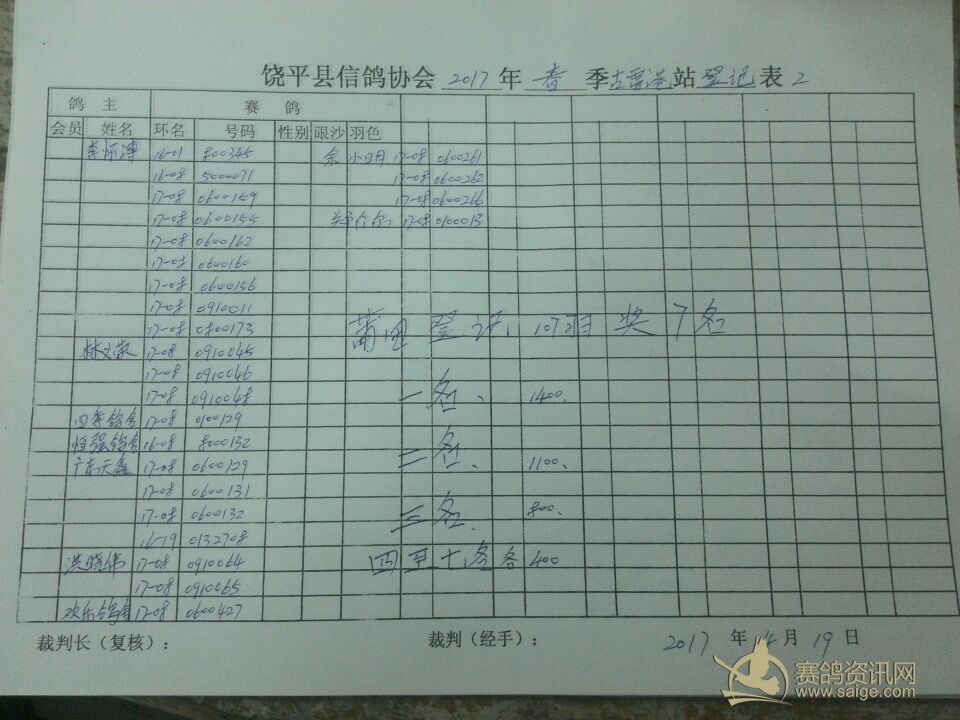 饶平县信鸽协会 2017 年 春 季 站 登记 表 2
鸽 主 赛 鸽
会员 姓名 环名 号码 性别 眼沙 羽色
16-01 800345 余小明 17-08 0600261
16-08 5000071 17-08 0600262
17-08 0600159 17-08 0600266
17-08 0600155 17-08 0100013
17-08 0600162
17-08 0600160
17-08 0600156
17-08 0910011
17-08 0800173 莆田 登记、107羽 奖 7名
林义荣 17-08 0910045
17-08 0910046
17-08 0910048 一名、 1400、
四季鸽舍 17-08 0100129
恒强鸽舍 16-08 8000132 二名、 1100、
广东天鑫 17-08 0600129
17-08 0600131
17-08 0600132 三名、 800、
16-19 0132708
洪晓伟 17-08 0910064 四至十名各400
17-08 0910065
欢乐鸽舍 17-08 0600427
裁判长（复核）： 裁判（经手）： 2017 年 4 月 19 日
赛鸽资讯网
www.saige.com